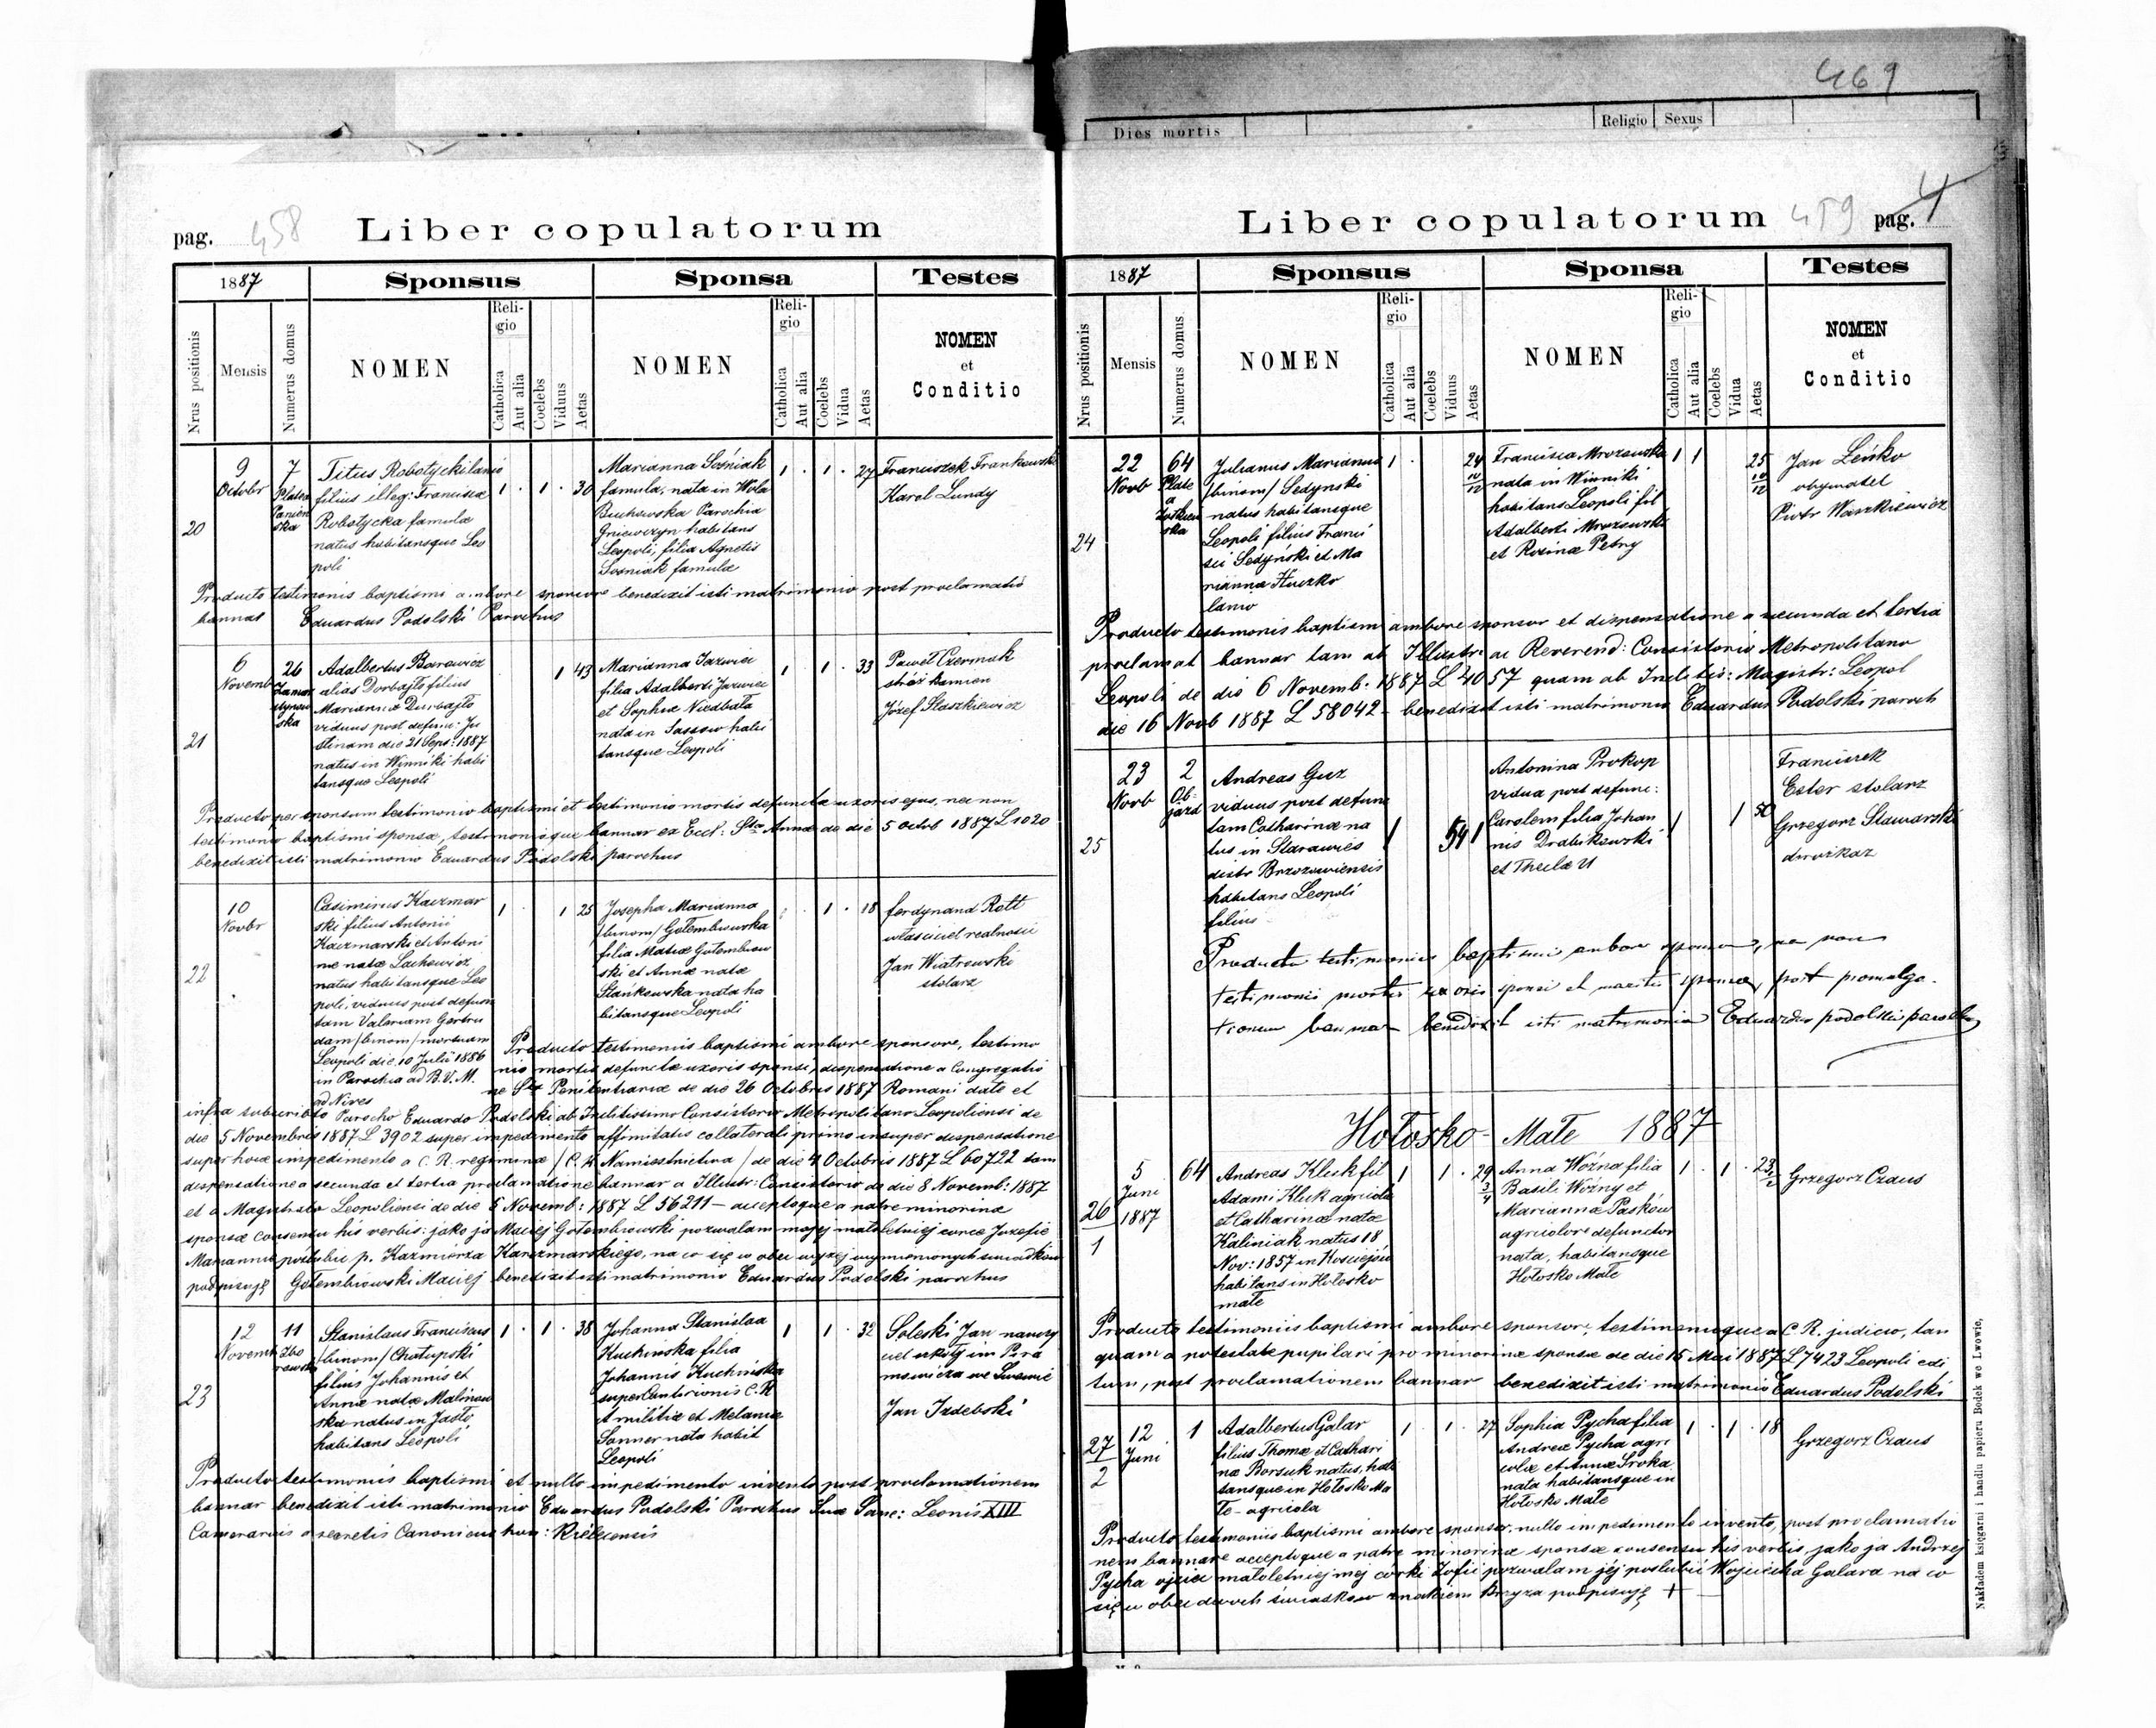 469
Dies mortis Religio Sexus
pag. 458 Liber copulatorum
1887 Sponsus Sponsa Testes
Nrus positionis Mensis Numerus domus NOMEN Religio Catholica Aut alia Coelebs Viduus Aetas NOMEN Religio Catholica Aut alia Coelebs Vidua Aetas NOMEN et Conditio
20
9 Octobr
7
Platea
Panień
ska
Titus Robotycki lanio
filius illeg: Francisca
Robotycka famula
natus habitansque Leo
poli
1 . 1 . 30
Marianna Sośniak
famula, nata in Wola
Buchowska Parochia
Gniewczyn habitans
Leopoli, filia Agnetis
Sosniak famulæ
1 . 1 . 27
Franciszek Frankowski
Karol Lundy
Producto testimonis baptismi ambore sponsore benedixit isti matrimonio post proclamatio
bannas Eduardus Podolski Parochus
21
6
Novemb
26
Zamar
stynow
ska
Adalbertus Barowicz
alias Dorbajło filius
Marianna Durbajło
viduus post defunc: Ju
stinam die 21 Sept: 1887
natus in Winniki habi
tansque Leopoli
1 43
Marianna Jazwiec
filia Adalberti Jazwiec
et Sophiæ Niedbała
nata in Sassow habi
tansque Leopoli
1 1 . 33
Paweł Czermak
stróż kamien
Józef Staszkiewicz
Producto per sponsum testimonio baptismi et testimonio mortis defunctæ uxoris ejus, nec non
testimonio baptismi sponsæ, testimonioque bannar ex Eccl: Sta Annæ de die 5 Octob 1887 L 1020
benedixit isti matrimonio Eduardus Podolski parochus
22
10
Novbr
Casimirus Kaczmar
ski filius Antonii
Kaczmarski et Antoni
næ natæ Lachowicz
natus habitansque Leo
poli, viduus post defunc
tam Valeriam Gertru
dam /binom/ mortuam
Leopoli die 10 Julii 1886
in Parochia ad B.V.M.
ad Nives
1 . 1 25
Josepha Marianna
/binom/ Gołembiowska
filia Matiæ Gołembiow
ski et Annæ natæ
Stańkowska nata ha
bitansque Leopoli
1 . 18
ferdynand Rott
właściciel realności
Jan Wiatrowski
stolarz
Producto testimoniis baptismi ambore sponsore, testimo
nio mortis defunctæ uxoris sponsi, dispensatione a Congregatio
ne Stæ Penitentiariæ de die 26 Octobris 1887 Romani dato et
infra subscripto Parocho Eduardo Podolski ab Inclitissimo Consistorio Metropolitano Leopoliensi de
die 5 Novembris 1887 L 3902 super impedimento affinitatis collaterali primo insuper dispensatione
super hoce impedimento a C. R. regiminæ /C. K Namiestnictwa/ de die 4 Octobris 1887 L 60722 tam
dispensatione a secunda et tertia proclamatione bannar a Illustr: Consistorio de die 8 Novemb: 1887
et a Magistratu Leopoliensi de die 5 Novemb: 1887 L 56211 — acceptoque a patre minorinæ
sponsæ consensu his verbis: jako ja Maciej Gołembiowski pozwalam mojej małoletniej corce Jozefie
Mariannie poślubić p. Kazmierza Kaczmarskiego, na co się w obec wyżej wymienionych swiadków
podpisuję Gołembiowski Maciej benedixit isti matrimonio Eduardus Podolski parochus
23
12
Novemb
11
Zbo
rowska
Stanislaus Franciscus
/binom/ Chałupski
filius Johannis et
Annæ natæ Malinow
ska natus in Jasło,
habitans Leopoli
1 . 1 . 38
Johanna Stanislaa
Kuchinska filia
Johannis Kuchinska
super Centurionis C. R
A militiæ et Melaniæ
Sanner nata habit
Leopoli
1 1 . 32
Soleski Jan nauczy
ciel szkoły im Pira
mowicza we Lwowie
Jan Izdebski
Producto testimoniis baptismi et nullo impedimento invento post proclamationem
bannar benedixit isti matrimonio Eduardus Podolski Parochus Suæ Sanc: Leonis XIII
Camerarius a secretis Canonicus hon: Kielcensis
Liber copulatorum 459 pag. 4
1887 Sponsus Sponsa Testes
Nrus positionis Mensis Numerus domus NOMEN Religio Catholica Aut alia Coelebs Viduus Aetas NOMEN Religio Catholica Aut alia Coelebs Vidua Aetas NOMEN et Conditio
24
22
Novb
64
Plate
a
Żołkiew
ska
Julianus Marianus
/binom/ Sedynski
natus habitansque
Leopoli filius Franci
sci Sedyński et Ma
rianna Huczko
lanio
1 . 24
Francisca Mrozowska
nata in Winniki
habitans Leopoli fil
Adalberti Mrozowski
et Rosinæ Petry
1 1 25 10/12
Jan Leńko
obywatel
Piotr Waszkiewicz
Producto testimonis baptismi ambore sponsor et dispensatione a secunda et tertia
proclamat bannar tam ab Illustr: ac Reverend: Consistorio Metropolitano
Leopoli de die 6 Novemb: 1887 L 4057 quam ab Inclitis: Magistr: Leopol
die 16 Novb 1887 L 58042 - benedixit isti matrimonio Eduardus Podolski paroch
25
23
Novb
2
Ob-
jazd
Andreas Guz
viduus post defunc
tam Catharinæ na
tus in Starawies
distr Brzozowiensis
habitans Leopoli
filius
1 54 1
Antonina Prokop
vidua post defunc:
Carolem filia Johan
nis Drabikowski
et Theclæ U
1 1 50
Franciszek
Ester stolarz
Grzegorz Stawarski
dwożkaz
Producto testimonies baptismi ambore sponsor, nec non
testimonii mortis uxoris sponsi et mariti sponsæ, post promulga-
tionem bannar benedixit isti matrimonio Eduardus podolski paroch
Hołosko- Małe 1887
26
1
5
Juni
1887
64
Andreas Kluk fil
Adami Kluk agricola
et Catharinæ natæ
Kaliniak natus 18
Nov: 1857 in Kosciejów
habitans in Hołosko
małe
1 1 . 29 3/4
Anna Wózna filia
Basili Wózny et
Marianna Pasków
agricolor defunctor
nata, habitansque
Hołosko Małe
1 . 1 . 23
Grzegorz Czaus
Producto testimoniis baptismi ambore sponsore, testimonioque a C R. judicio, tan
quam a potestate pupilari pro minorinæ sponsæ de die 15 Mai 1887 L 7423 Leopoli edi
tum, post proclamationem bannar benedixit isti matrimonio Eduardus Podolski
27
2
12
Juni
1
Adalbertus Galar
filius Thomæ et Cathari
næ Borsuk natus, habi
tansque in Hołosko Ma
łe - agricola
1 1 . 27
Sophia Pycha filia
Andreæ Pycha agri
colæ et Annæ Sroka
nata habitansque in
Hołosko Małe
1 . 1 . 18
Grzegorz Czaus
Producto testimoniis baptismi ambore sponsor, nullo impedimento invento, post proclamatio
nem bannare acceptoque a patre minorinæ sponsæ consensu his verbis, jako ja Andrzej
Pycha ojciec małoletniej mej córki Zofii pozwalam jéj poslubić Wojciecha Galara na co
się w obec dwoch świadkow znakiem krzyza podpisuję +
Nakładem księgarni i handlu papieru Bodek we Lwowie.